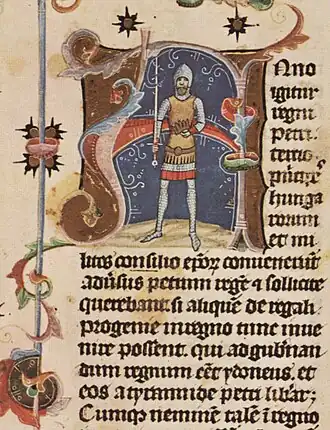 Anno
igitur
regni
petri
tercio
principes
hunga
rorum
et mi
lites consilio episcoporum convenerunt
adversus petrum regem et sollicite
querebant si aliquem de regali
progenie in regno tunc inve
nire possent. qui ad gubernan
dum regnum esset ydoneus, et
eos a tyrannide petri liberaret
Cumque neminem talem in regno